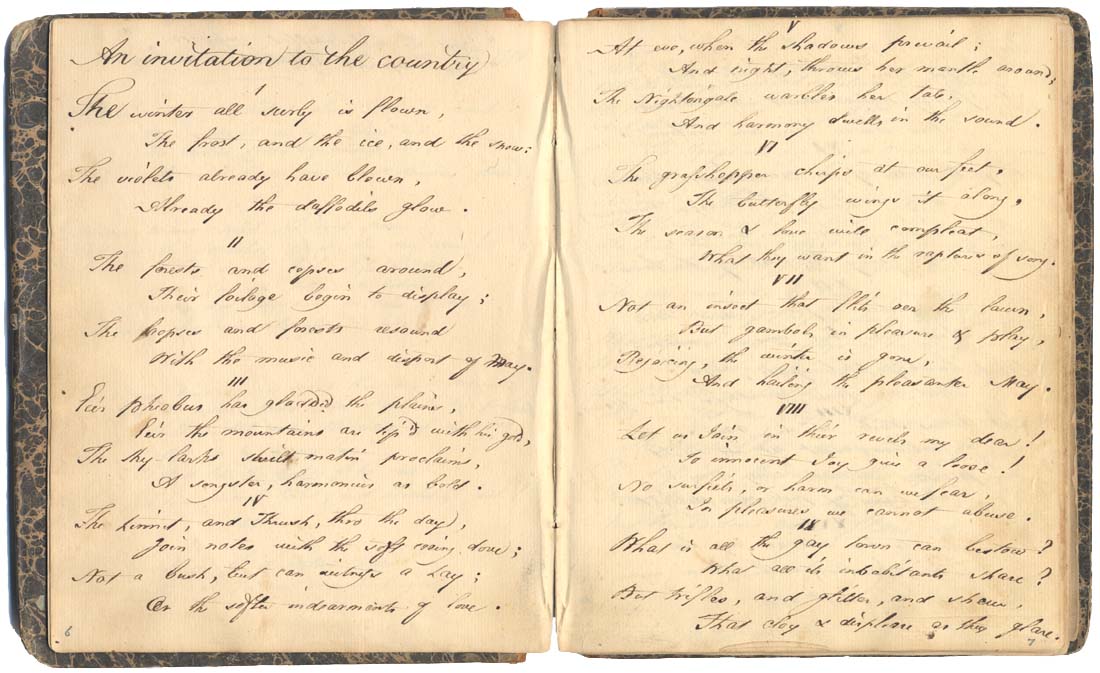 An invitation to the country
I
The winter all surly is flown,
The frost, and the ice, and the snow:
The violets already have blown,
Already the daffodils glow.
II
The forests and copses around,
Their foilage begin to display;
The copses and forests resound
With the music and disport of May.
III
E'er Phœbus has gladded the plains,
E'er the mountains are tip'd with his gold,
The sky-larks shrill matin proclaims,
A songster, harmonious as bold.
IV
The Linnet, and Thrush, thro the day,
Join notes with the soft cooing dove;
Not a bush, but can witness a Lay;
Or the softer indearments of love.
6
V
At eve, when the shadows prevail;
And night, throws her mantle around;
The Nightingale warbles her tale,
And harmony dwells in the sound.
VI
The grasshopper chirps at our feet,
The butterfly wings it along,
The season & love will compleat,
What they want in the raptures of song.
VII
Not an insect that flits oer the lawn,
But gambols, in pleasure & play,
Rejoicing, the winter is gone,
And hailing the pleasanter May.
VIII
Let us Join in their revels my dear!
To innocent Joy give a loose!
No surfeits, or harm can we fear,
In pleasures we cannot abuse.
IX
What is all the gay town can bestow?
What all its inhabitants share?
But trifles, and glitter, and shew,
That cloy & displease as they glare.
7